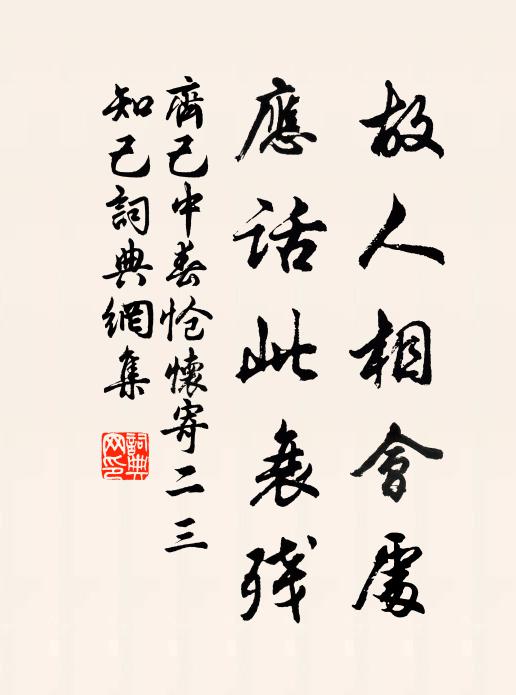 故人相會處
應話此衰殘
齊己中春愴懷寄二三
知己詞典網集
詞典
网印